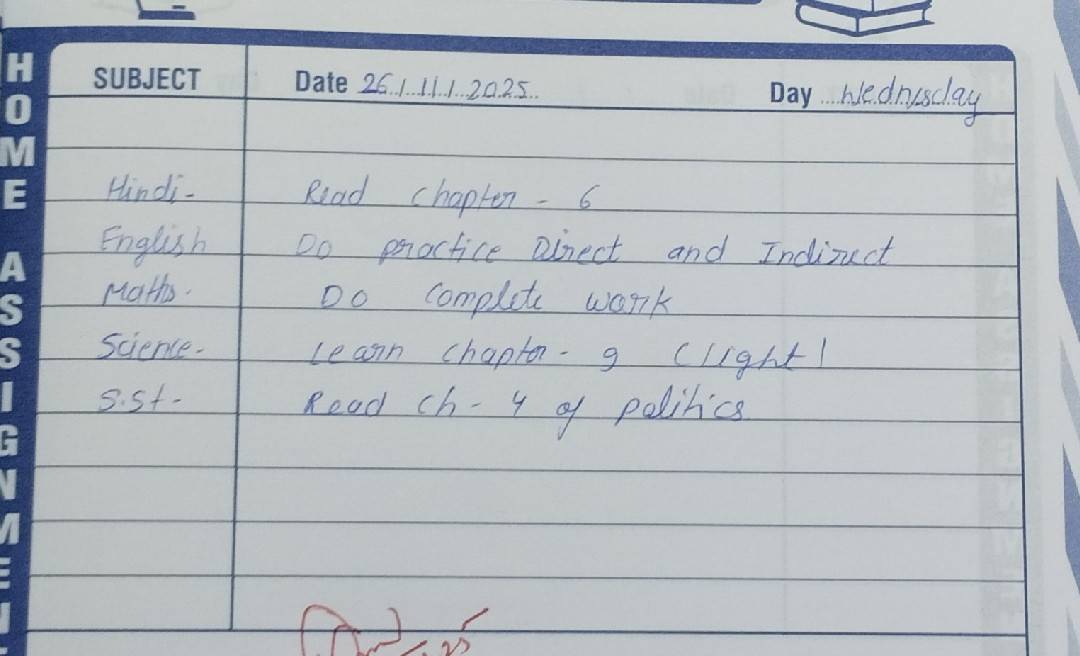 HOME ASSIGNMENT
SUBJECT Date 26/11/2025 Day Wednesday
Hindi- Read chapter - 6
English Do practice Direct and Indirect
Maths. Do complete work
Science- Learn chapter - 9 (light)
S.St- Read ch - 4 of politics